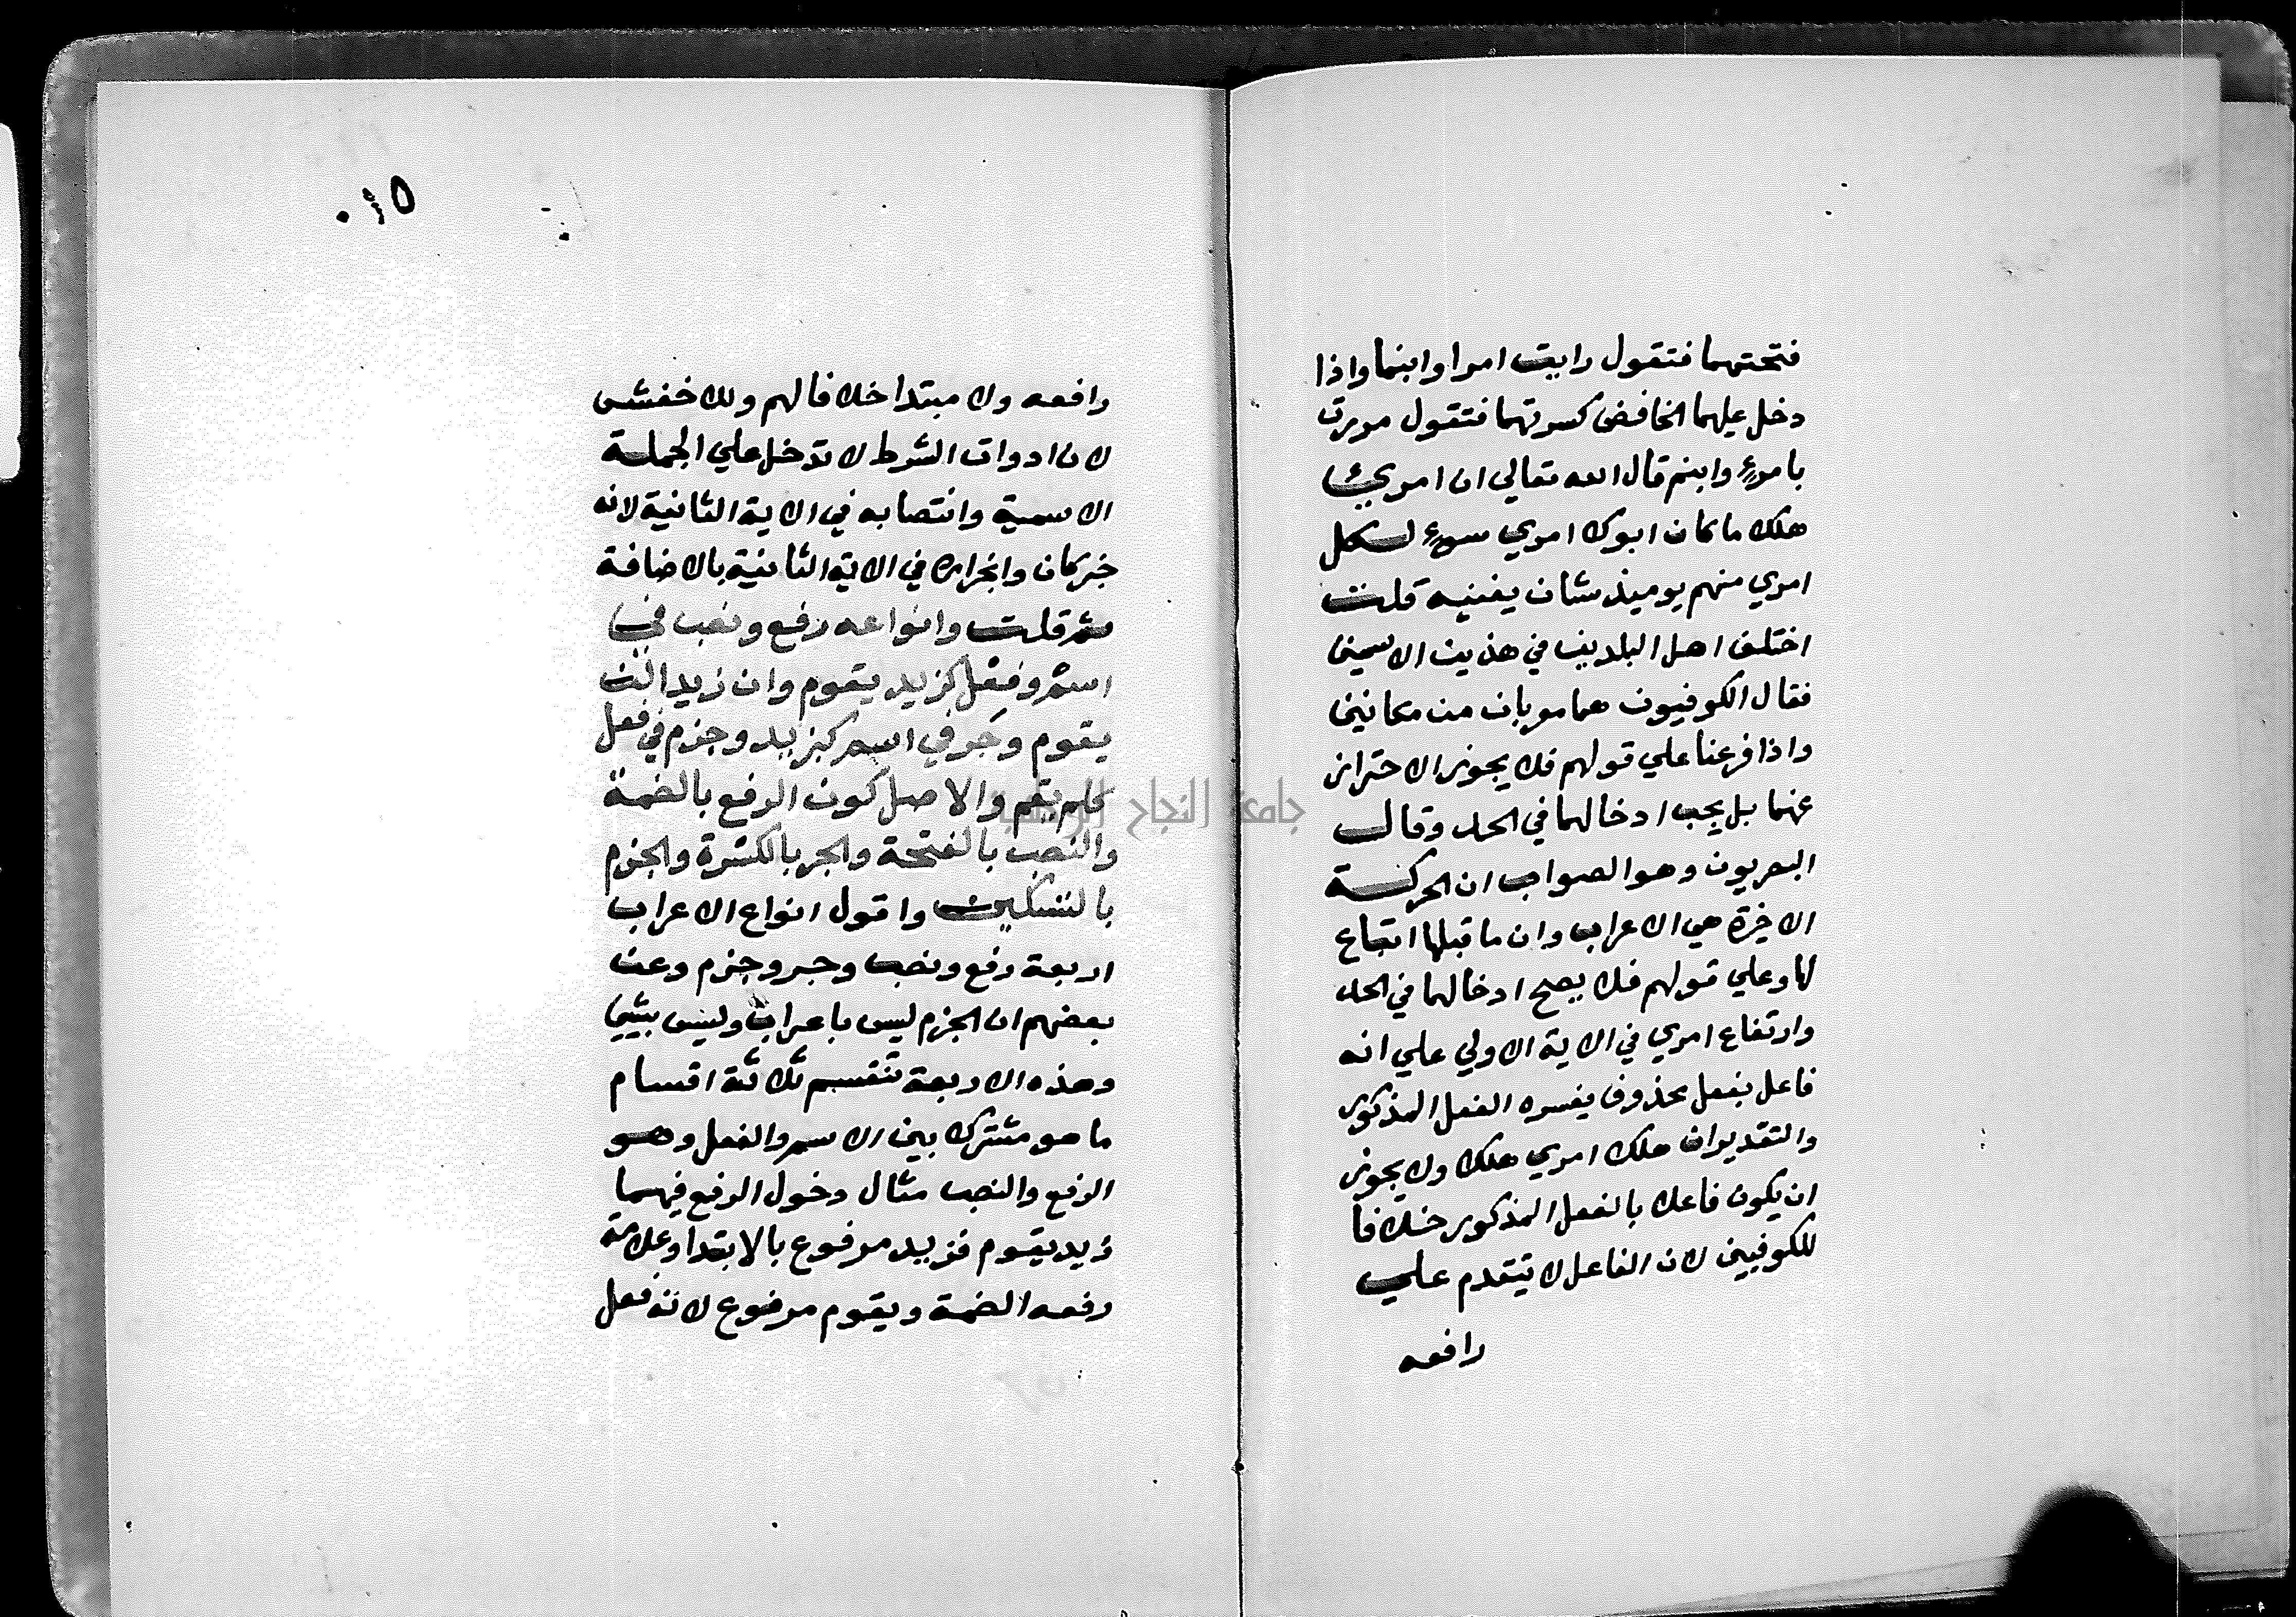 فتحتهما فتقول رايت امرا وابنما واذا
دخل عليهما الخافض كسرتهما فتقول مررت
بامرءٍ وابنم قال الله تعالي ان امرئ
هلك ما كان ابوك امري سوءٍ لكل
امري منهم يوميذ شان يغنيه قلت
اختلف اهل البلدين في هذين الاسمين
فقال الكوفيون هما معربان من مكانين
واذا فرعنا علي قولهم فلا يجوز الاحتراز
عنهما بل يجب ادخالهما في الحد وقال
البصريون وهو الصواب ان الحركة
الاخيرة هي الاعراب وان ما قبلها اتباع
لها وعلي قولهم فلا يصح ادخالهما في الحد
وارتفاع امري في الاية الاولي علي انه
فاعل بفعل محذوف يفسره الفعل المذكور
والتقدير ان هلك امري هلك ولا يجوز
ان يكون فاعلا بالفعل المذكور خلافا
للكوفيين لان الفاعل لا يتقدم علي
رافعه
٠١٥
رافعه ولا مبتدا خلافا لهم وللاخفش
لان ادوات الشرط لا تدخل علي الجملة
الاسمية وانتصابه في الاية الثانية لانه
خبر كان وانجراره في الاية الثانية بالاضافة
ثم قلت وانواعه رفع ونصب في
اسم وفعل كزيد يقوم وان زيدا لن
يقوم وجر في اسم كبزيد وجزم في فعل
كلم يقم والاصل كون الرفع بالضمة
والنصب بالفتحة والجر بالكسرة والجزم
بالسكون واقول انواع الاعراب
اربعة رفع ونصب وجر وجزم وعن
بعضهم ان الجزم ليس باعراب وليس بشي
وهذه الاربعة تنقسم ثلاثة اقسام
ما هو مشترك بين الاسم والفعل وهو
الرفع والنصب مثال دخول الرفع فيهما
زيد يقوم فزيد مرفوع بالابتدا وعلامة
رفعه الضمة ويقوم مرفوع لانه فعل
جامعة النجاح الوطنية